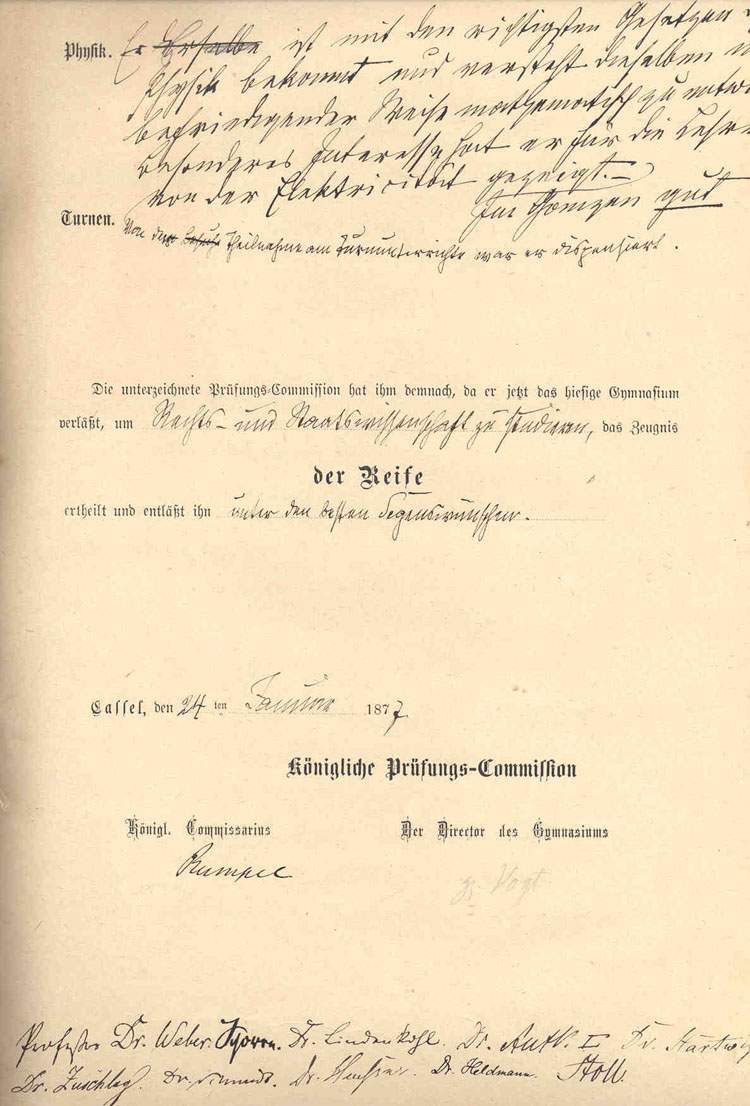 Physik. Er Derselbe ist mit den wichtigsten Gesetzen
Physik bekannt und versteht dieselben
befriedigender Weise mathematisch zu
besonderes Interesse hat er für die Lehre
von der Elektricität gezeigt. –
Im Ganzen gut
Turnen. Von dem Theilnahme am Turnunterrichte war er dispensiert.
Die unterzeichnete Prüfungs-Commission hat ihm demnach, da er jetzt das hiesige Gymnasium
verläßt, um Rechts- und Staatswissenschaft zu studieren, das Zeugnis
der Reife
ertheilt und entläßt ihn unter den besten Segenswünschen.
Cassel, den 24 ten Januar 1877
Königliche Prüfungs-Commission
Königl. Commissarius Der Director des Gymnasiums
Rumpel gz. Vogt
Professor Dr. Weber. Dr. Lindenkohl. Dr. Auth. I Dr. Hartwig
Dr. Zuschlag. Dr. Schmidt. Dr. Heusner. Dr. Heldmann. Stoll.